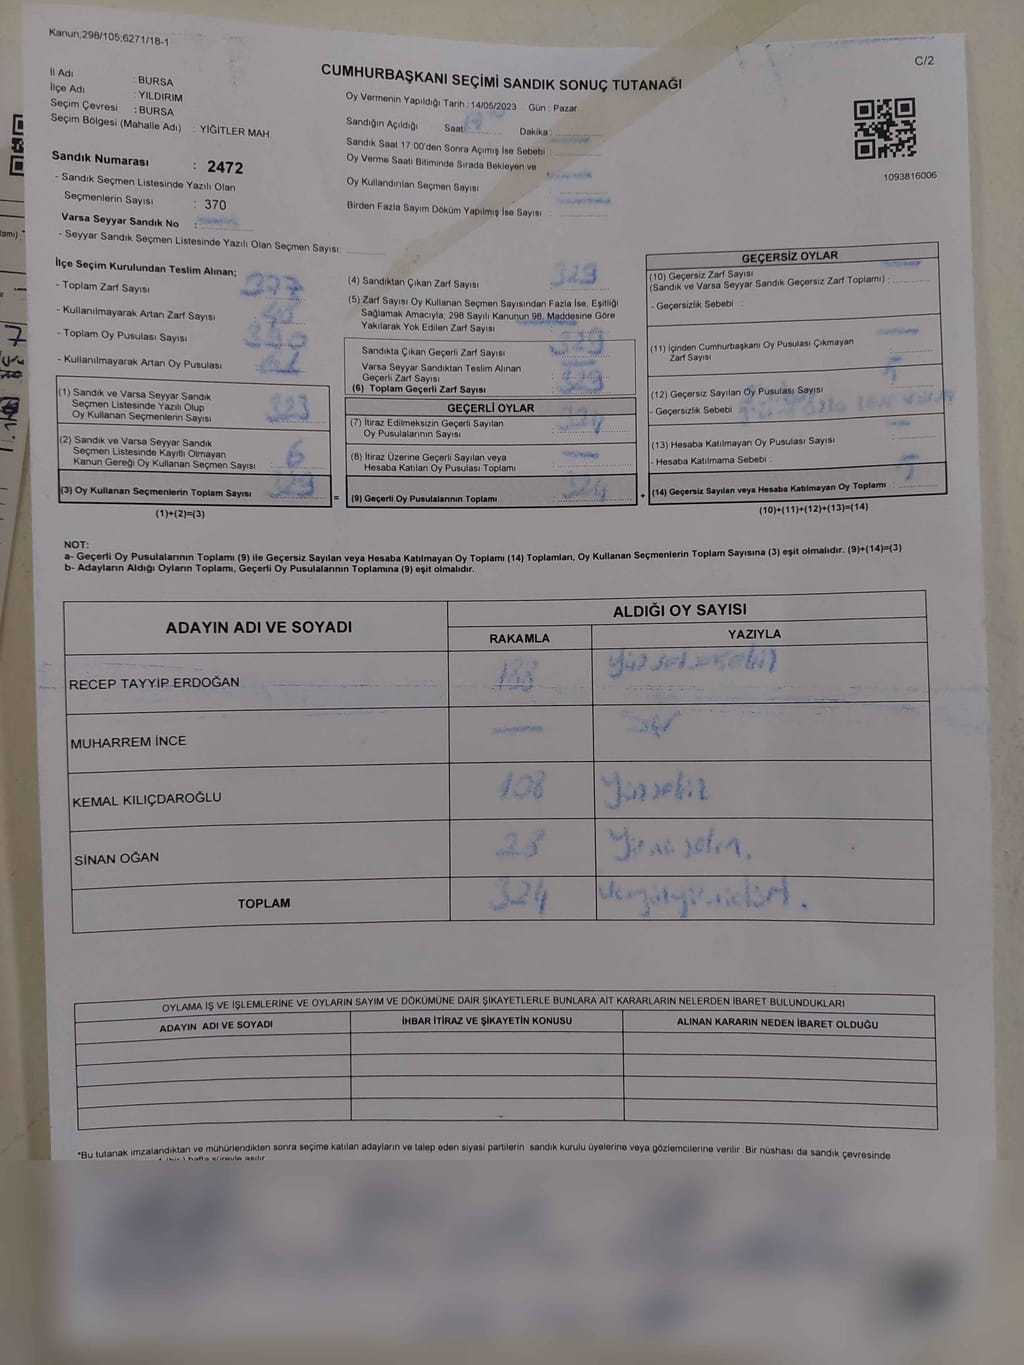 Kanun;298/105;6271/18-1
C/2
CUMHURBAŞKANI SEÇİMİ SANDIK SONUÇ TUTANAĞI
İl Adı : BURSA
İlçe Adı : YILDIRIM
Seçim Çevresi : BURSA
Seçim Bölgesi (Mahalle Adı) : YİĞİTLER MAH.
Sandık Numarası : 2472
- Sandık Seçmen Listesinde Yazılı Olan
Seçmenlerin Sayısı : 370
Varsa Seyyar Sandık No :
- Seyyar Sandık Seçmen Listesinde Yazılı Olan Seçmen Sayısı:
Oy Vermenin Yapıldığı Tarih : 14/05/2023 Gün : Pazar
Sandığın Açıldığı Saat Dakika :
Sandık Saat 17:00'den Sonra Açımış İse Sebebi :
Oy Verme Saati Bitiminde Sırada Bekleyen ve
Oy Kullandırılan Seçmen Sayısı :
Birden Fazla Sayım Döküm Yapılmış İse Sayısı :
1093816006
İlçe Seçim Kurulundan Teslim Alınan;
- Toplam Zarf Sayısı : 377
- Kullanılmayarak Artan Zarf Sayısı : 48
- Toplam Oy Pusulası Sayısı :
- Kullanılmayarak Artan Oy Pusulası :
(1) Sandık ve Varsa Seyyar Sandık
Seçmen Listesinde Yazılı Olup
Oy Kullanan Seçmenlerin Sayısı : 323
(2) Sandık ve Varsa Seyyar Sandık
Seçmen Listesinde Kayıtlı Olmayan
Kanun Gereği Oy Kullanan Seçmen Sayısı : 6
(3) Oy Kullanan Seçmenlerin Toplam Sayısı : 329
(1)+(2)=(3)
=
(4) Sandıktan Çıkan Zarf Sayısı : 329
(5) Zarf Sayısı Oy Kullanan Seçmen Sayısından Fazla İse, Eşitliği
Sağlamak Amacıyla; 298 Sayılı Kanunun 98. Maddesine Göre
Yakılarak Yok Edilen Zarf Sayısı :
Sandıkta Çıkan Geçerli Zarf Sayısı : 329
Varsa Seyyar Sandıktan Teslim Alınan
Geçerli Zarf Sayısı :
(6) Toplam Geçerli Zarf Sayısı : 329
GEÇERLİ OYLAR
(7) İtiraz Edilmeksizin Geçerli Sayılan
Oy Pusulalarının Sayısı : 324
(8) İtiraz Üzerine Geçerli Sayılan veya
Hesaba Katılan Oy Pusulası Toplamı :
(9) Geçerli Oy Pusulalarının Toplamı : 324
+
GEÇERSİZ OYLAR
(10) Geçersiz Zarf Sayısı
(Sandık ve Varsa Seyyar Sandık Geçersiz Zarf Toplamı) :
- Geçersizlik Sebebi :
(11) İçinden Cumhurbaşkanı Oy Pusulası Çıkmayan
Zarf Sayısı :
(12) Geçersiz Sayılan Oy Pusulası Sayısı : 5
- Geçersizlik Sebebi :
(13) Hesaba Katılmayan Oy Pusulası Sayısı :
- Hesaba Katılmama Sebebi :
(14) Geçersiz Sayılan veya Hesaba Katılmayan Oy Toplamı : 5
(10)+(11)+(12)+(13)=(14)
NOT:
a- Geçerli Oy Pusulalarının Toplamı (9) ile Geçersiz Sayılan veya Hesaba Katılmayan Oy Toplamı (14) Toplamları, Oy Kullanan Seçmenlerin Toplam Sayısına (3) eşit olmalıdır. (9)+(14)=(3)
b- Adayların Aldığı Oyların Toplamı, Geçerli Oy Pusulalarının Toplamına (9) eşit olmalıdır.
ADAYIN ADI VE SOYADI
ALDIĞI OY SAYISI
RAKAMLA YAZIYLA
RECEP TAYYİP ERDOĞAN 188 yüzseksensekiz
MUHARREM İNCE
KEMAL KILIÇDAROĞLU 108 Yüzsekiz
SİNAN OĞAN 28 Yirmi sekiz.
TOPLAM 324 üçyüzyirmidört.
OYLAMA İŞ VE İŞLEMLERİNE VE OYLARIN SAYIM VE DÖKÜMÜNE DAİR ŞİKAYETLERLE BUNLARA AİT KARARLARIN NELERDEN İBARET BULUNDUKLARI
ADAYIN ADI VE SOYADI İHBAR İTİRAZ VE ŞİKAYETİN KONUSU ALINAN KARARIN NEDEN İBARET OLDUĞU
*Bu tutanak imzalandıktan ve mühürlendikten sonra seçime katılan adayların ve talep eden siyasi partilerin sandık kurulu üyelerine veya gözlemcilerine verilir .Bir nüshası da sandık çevresinde